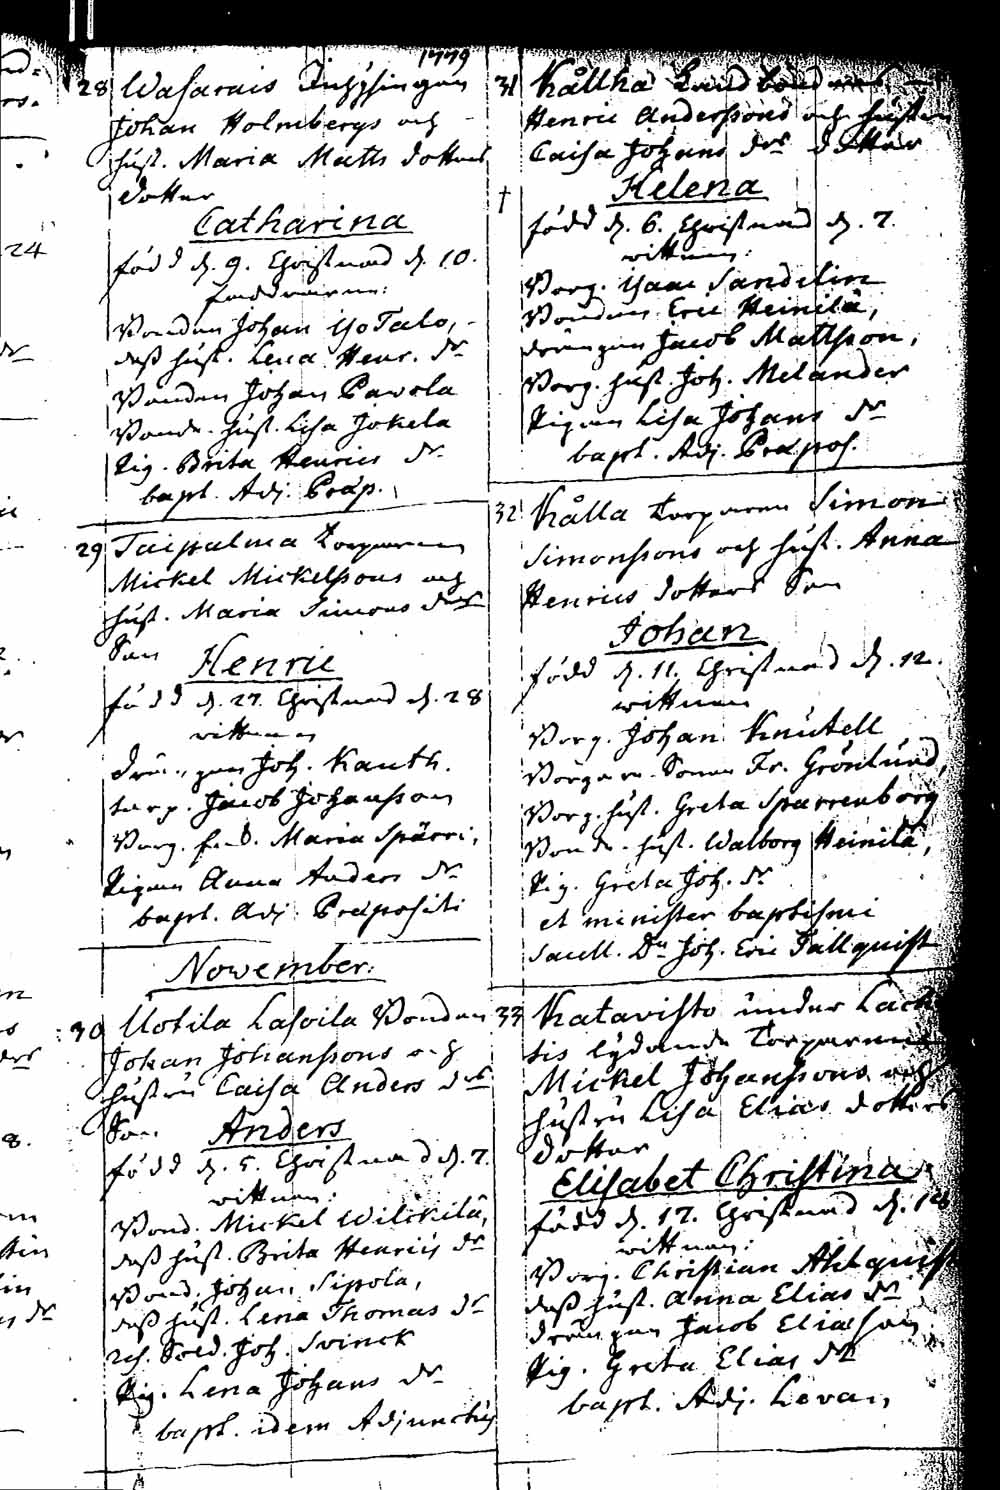 1779
28 Wasarais Inhysingen
Johan Holmbergs och
hust. Maria Matts dotters
dotter
Catharina
född d. 9. Christnad d. 10.
faddrarne:
Bonden Johan Isotalo,
dess hust. Lena Henr. dr
Bonden Johan Pavola
Bond. hust. Lisa Jokela
Pig. Brita Henrics dr
bapt. Adj. Præp.
29 Taipalma Torparen
Mickel Mickelssons och
hust. Maria Simons drs
Son
Henric
född d. 27. Christnad d. 28
wittnen
drängen Joh. Kauth.
torp. Jacob Johansson
Borg. Maria Spärri,
Pigan Anna Anders dr
bapt. Adj. Præpositi
November.
30 Uotila Lasoila Bonden
Johan Johanssons och
hustru Caisa Anders drs
Son
Anders
född d. 5. Christnad d. 7.
wittnen:
Bond. Mickel Wilckilä,
dess hust. Brita Henrics dr
Bond. Johan Sipola,
dess hust. Lena Thomas dr
Sold. Joh. Svinck
Pig. Lena Johans dr
bapt. idem Adjunctus
31 Kållha Landbond
Henric Anderssons och hustru
Caisa Johans drs dotter
† Helena
född d. 6. Christnad d. 7.
wittnen:
Borg. Isaac Sandelin
Bonden Eric Heinilä,
drängen Jacob Mattsson,
Borg. hust. Joh. Melander
Pigan Lisa Johans dr
bapt. Adj. Præpos.
32 Kålla Torparen Simon
Simonssons och hust. Anna
Henrics dotters Son
Johan
född d. 11. Christnad d. 12.
wittnen
Borg. Johan Knutell
Borgare Sonen Fr. Grönlund,
Borg. hust. Greta Sparrenborg
Bond. hust. Walborg Heinilä,
Pig. Greta Joh. dr
et minister baptismi
Sacell. Dn Joh. Eric Tallquist
33 Katavisto under Lach
tis lydande Torparen
Mickel Johanssons och
hustru Lisa Elias dotters
dotter
Elisabet Christina
född d. 17. Christnad d. 18
wittnen:
Borg. Christian Ahlquist
dess hust. Anna Elias dr
drängen Jacob Eliasson
Pig. Greta Elias dr
bapt. Adj. Levan
24
8.